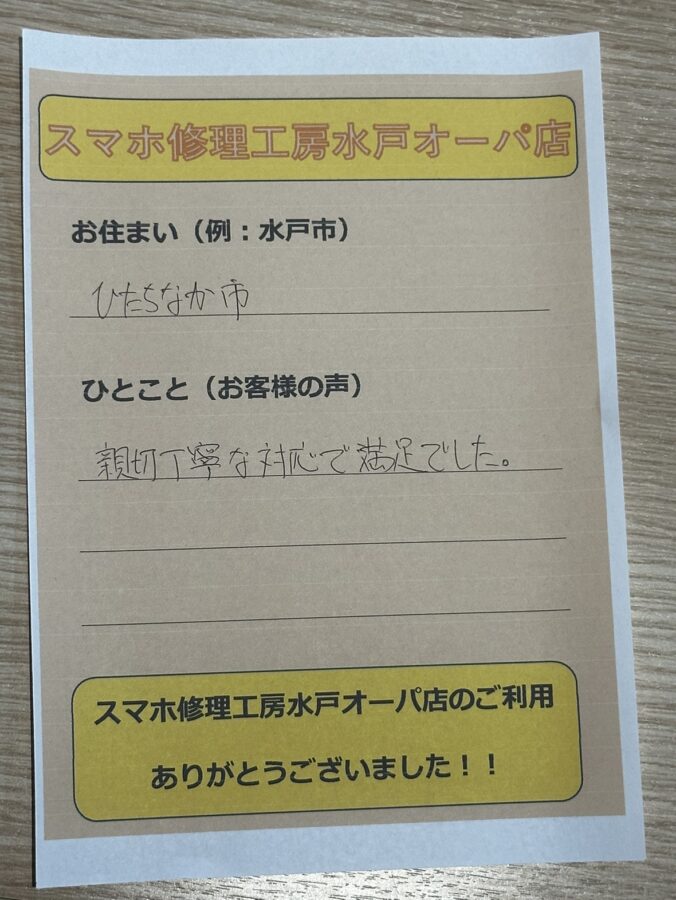 スマホ修理工房水戸オーパ店
お住まい（例：水戸市）
ひたちなか市
ひとこと（お客様の声）
親切丁寧な対応で満足でした。
スマホ修理工房水戸オーパ店のご利用
ありがとうございました！！